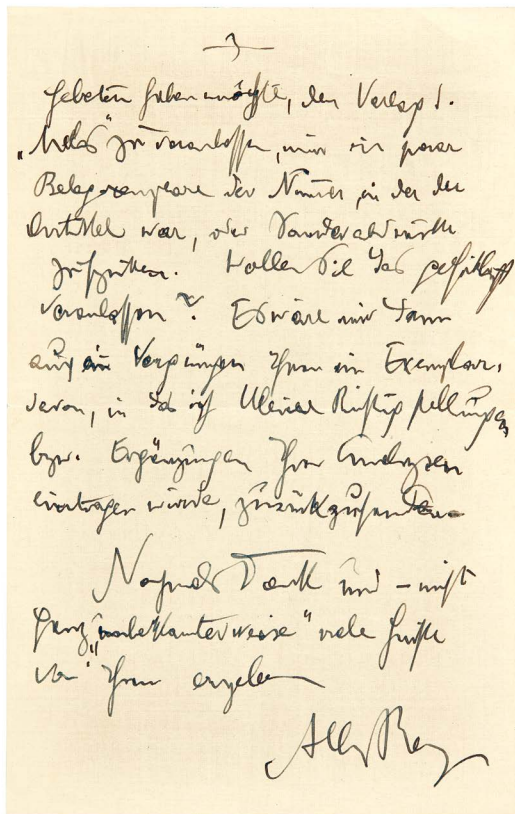 3
gebeten haben möchte, den Verlag d.
„Melos“ zu veranlassen, mir ein paar
Belegexemplare der Nummer, in der der
Artikel war, oder Sonderabdrücke
zuschicken. Wollen Sie das gefälligst
veranlassen? Es wäre mir dann
auch ein Vergnügen Ihnen ein Exemplar
davon, in das ich kleine Richtigstellungen
bzw. Ergänzungen Ihrer Analysen
eintragen würde, zurückzusenden
Nochmals Dank und – nicht
ganz „unbekannterweise“ viele Grüße
von Ihrem ergebenen
Alban Berg